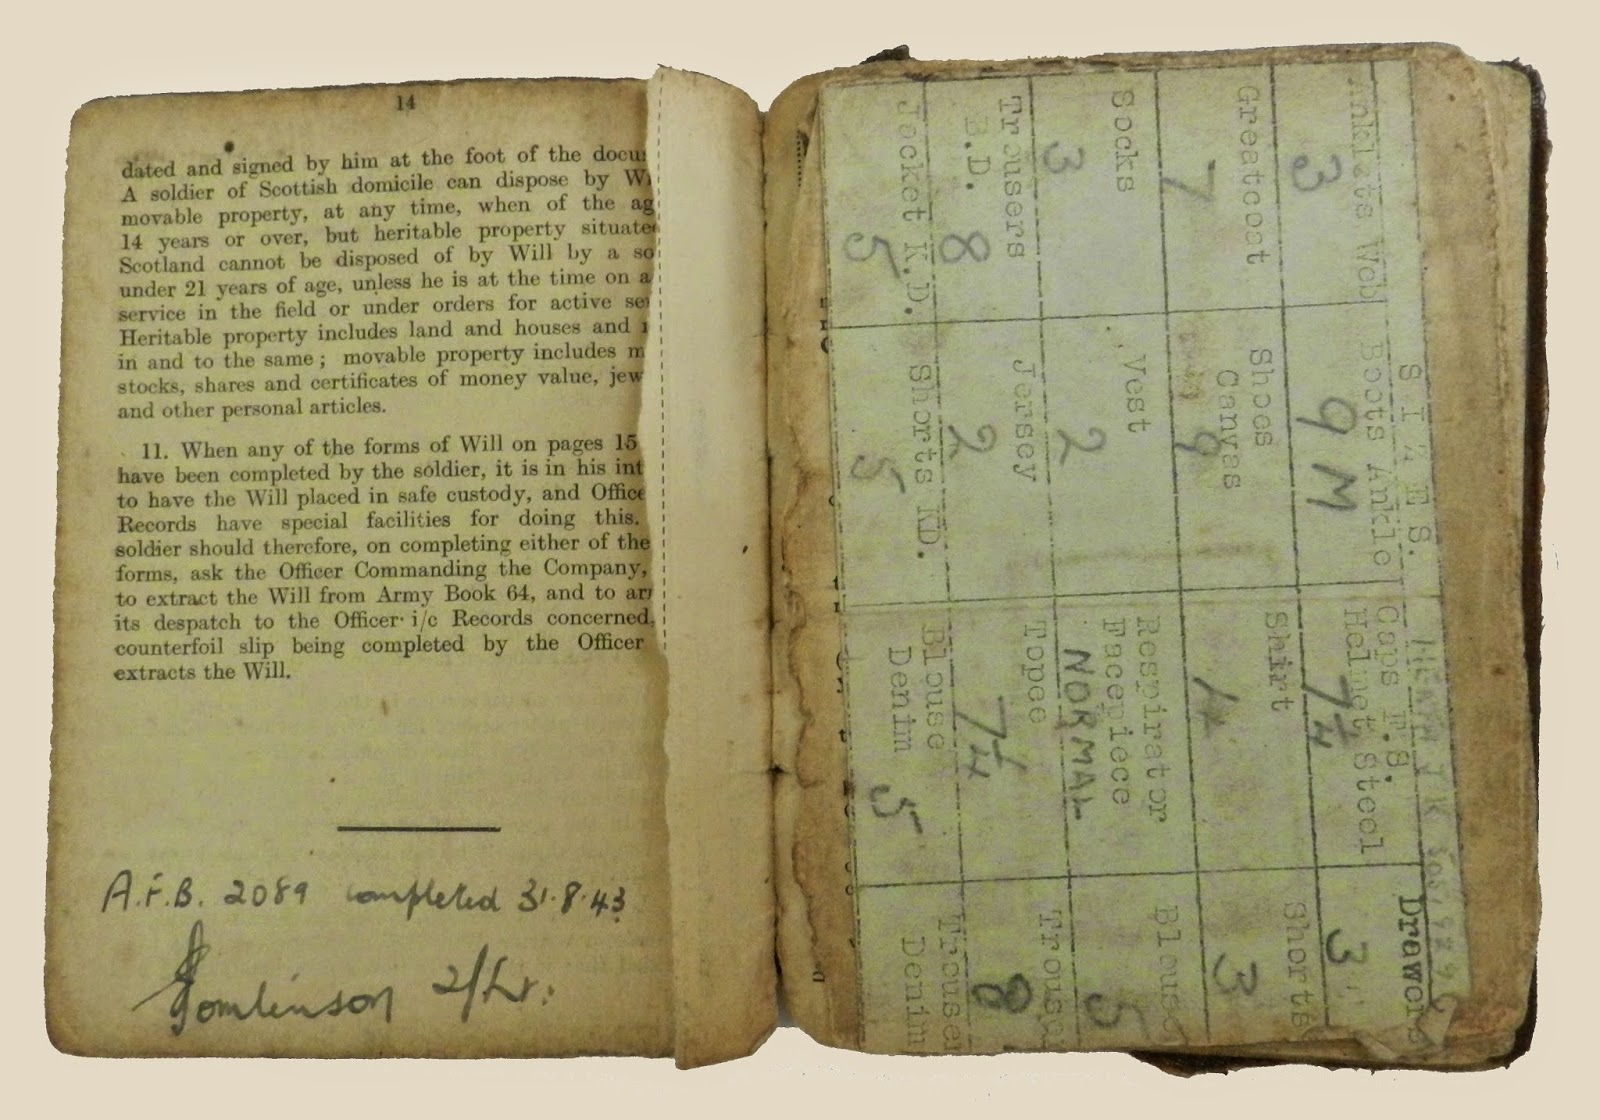 14
dated and signed by him at the foot of the docu
A soldier of Scottish domicile can dispose by W
movable property, at any time, when of the ag
14 years or over, but heritable property situate
Scotland cannot be disposed of by Will by a so
under 21 years of age, unless he is at the time on a
service in the field or under orders for active se
Heritable property includes land and houses and
in and to the same ; movable property includes m
stocks, shares and certificates of money value, jew
and other personal articles.
11. When any of the forms of Will on pages 15
have been completed by the soldier, it is in his int
to have the Will placed in safe custody, and Office
Records have special facilities for doing this.
soldier should therefore, on completing either of the
forms, ask the Officer Commanding the Company,
to extract the Will from Army Book 64, and to arr
its despatch to the Officer i/c Records concerned,
counterfoil slip being completed by the Officer
extracts the Will.
A.F.B. 2089 completed 31.8.43
Tomlinson 2/Lt.
S I Z E S.
Anklets Web
3
Boots Ankle
9 M
Caps F.S.
Helmet Steel
7¼
Drawers
3
Greatcoat
7
Shoes
Canvas
9
Shirt
4
Shorts
3
Socks
3
Vest
2
Respirator
Facepiece
NORMAL
Blouse
5
Trousers
B.D.
8
Jersey
2
Topee
7¼
Trouser
8
Jacket K.D.
5
Shorts KD.
5
Blouse
Denim
5
Trouser
Denim